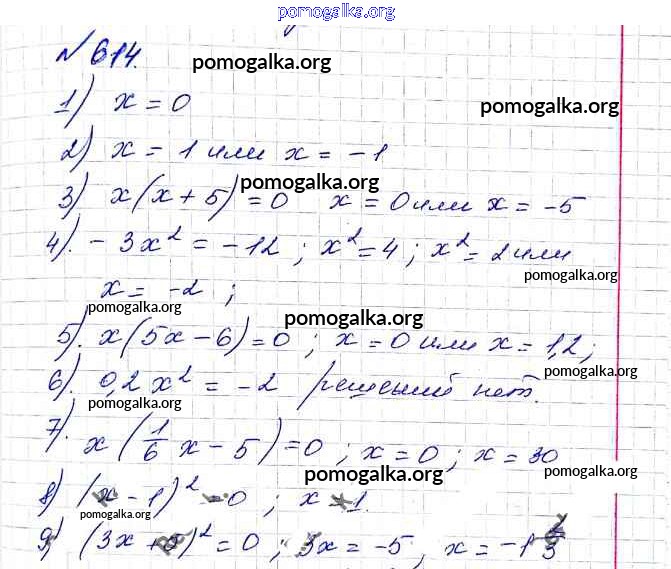 pomogalka.org
№ 614.
pomogalka.org
1) x = 0
pomogalka.org
2) x = 1 или x = -1
pomogalka.org
3) x(x + 5) = 0 x = 0 или x = -5
4). -3x² = -12 ; x² = 4 ; x² = 2 или
pomogalka.org
x = -2 ;
pomogalka.org
pomogalka.org
5). x(5x - 6) = 0 ; x = 0 или x = 1,2 ;
pomogalka.org
6). 0,2x² = -2 решений нет.
pomogalka.org
7). x(1/6 x - 5) = 0 ; x = 0 ; x = 30
pomogalka.org
pomogalka.org
8) (x - 1)² = 0 ; x = 1.
pomogalka.org
9) (3x + 5)² = 0 ; 3x = -5, x = -1 2/3